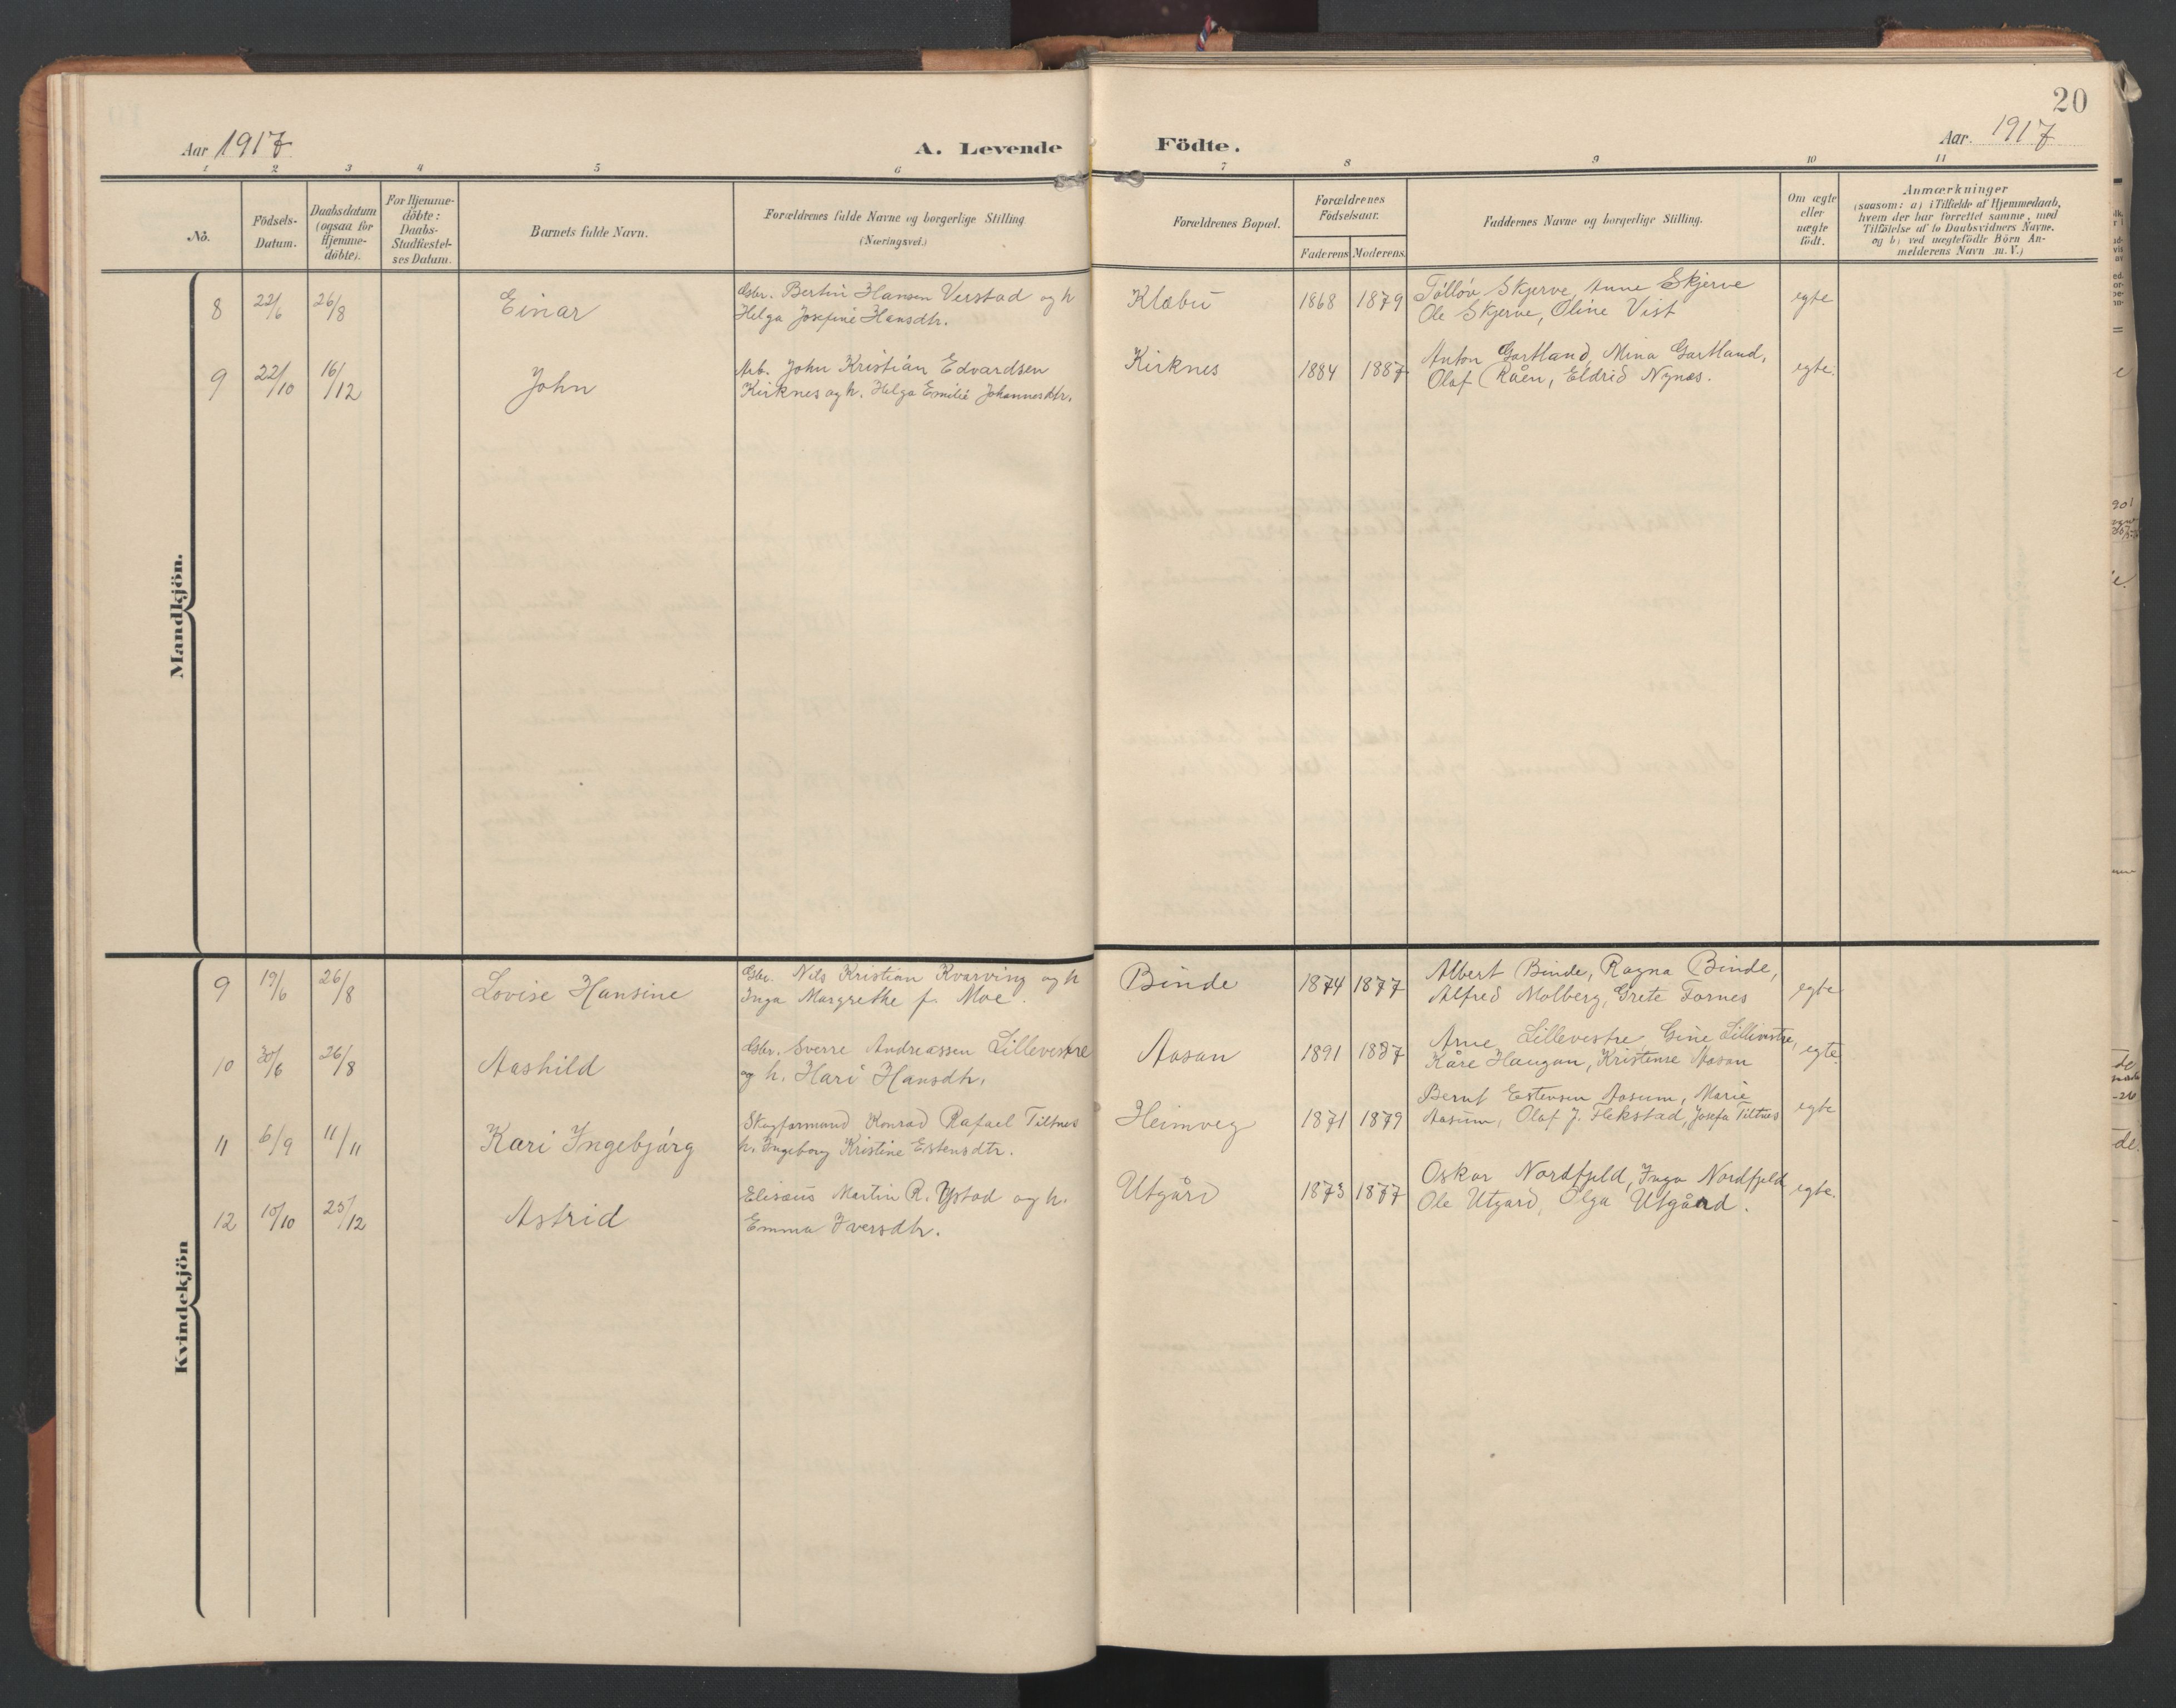 20
Aar 1917
A. Levende Födte.
Aar. 1917
1 2 3 4 5 6 7 8 9 10 11
No.
Födsels-
Datum.
Daabsdatum
(ogsaa for
Hjemme-
döbte).
For Hjemme-
döbte:
Daabs-
Stadfæstel-
ses Datum.
Barnets fulde Navn.
Forældrenes fulde Navne og borgerlige Stilling
(Næringsvei.)
Forældrenes Bopæl.
Forældrenes
Födselsaar.
Faderens Moderens.
Faddernes Navne og borgerlige Stilling.
Om ægte
eller
uægte
født.
Anmærkninger
(saasom: a) i Tilfælde af Hjemmedaab,
hvem der har forrettet samme, med
Tilföielse af to Daabsvidners Navne.
og b) ved uægtefödte Börn An-
melderens Navn m. V.)
Mandkjön.
8 22/6 26/8 Einar
Gbr. Bertin Hansen Verstad og h
Helga Josefine Hansdtr.
Klæbu 1868 1879
Tolløv Skjerve, Anne Skjerve
Ole Skjerve, Oline Vist
egte
9 22/10 16/12 John
Arb. John Kristian Edvardsen
Kirknes og h. Helga Emilie Johannesdtr.
Kirknes 1884 1887
Anton Gartland, Mina Gartland,
Olaf Råen, Eldrid Nynes.
egte.
Kvindekjön
9 19/6 26/8 Lovise Hansine
Gbr. Nils Kristian Kvarving og h
Inga Margrethe f. Moe.
Binde 1874 1877
Albert Binde, Ragna Binde,
Alfred Molberg, Grete Fornes
egte
10 30/6 26/8 Aashild
Gbr. Sverre Andreassen Lillevestre
og h. Hari Hansdtr.
Aasan 1891 1887
Arne Lillevestre, Gine Lillevestre,
Kåre Haugan, Kristense Aasan
egte.
11 6/9 11/11 Kari Ingebjørg
Skogformand Konrad Rafael Tiltnes
h. Ingeborg Kristine Estensdtr.
Heimveg 1871 1879
Bernt Estensen Aasum, Marie
Aasum, Olaf J. Flekstad, Josefa Tiltnes
egte
12 15/10 25/12 Astrid
Elisæus Martin R. Ystad og h.
Emma Iversdtr.
Utgård 1873 1877
Oskar Nordfjeld, Inga Nordfjeld
Ole Utgard, Olga Utgård.
egte.